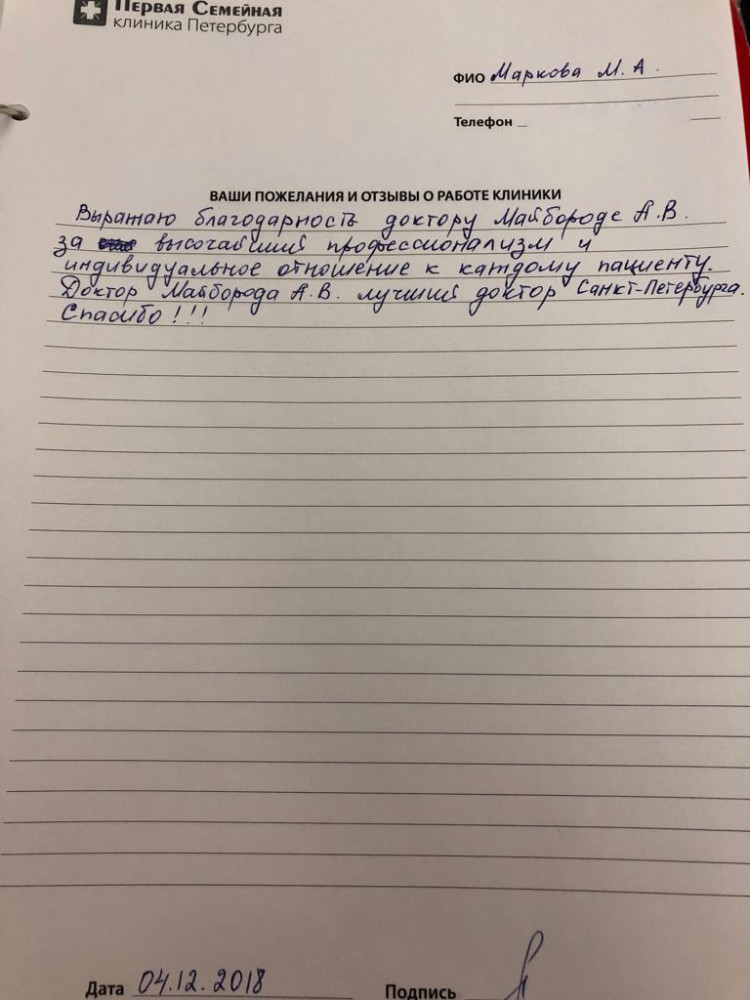 Первая Семейная
клиника Петербурга
ФИО Маркова М. А.
Телефон
ВАШИ ПОЖЕЛАНИЯ И ОТЗЫВЫ О РАБОТЕ КЛИНИКИ
Выражаю благодарность доктору Майбороде А.В.
за высочайший профессионализм и
индивидуальное отношение к каждому пациенту.
Доктор Майборода А.В. лучший доктор Санкт-Петербурга.
Спасибо!!!
Дата 04.12.2018 Подпись